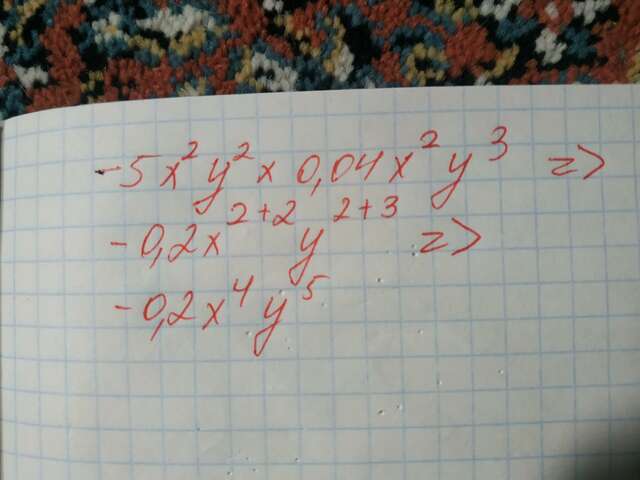 -5x²y² × 0,04x²y³ =>
-0,2x²⁺²y²⁺³ =>
-0,2x⁴y⁵